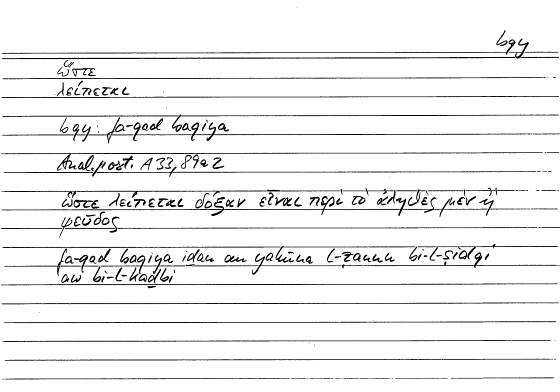 bqy
ὥστε
λείπεται
bqy: fa-qad baqiya
Anal. post. A 33, 89a2
ὥστε λείπεται δόξαν εἶναι περὶ τὸ ἀληθὲς μὲν ἢ
ψεῦδος
fa-qad baqiya iḏan an yakūna l-ẓannu bi-l-ṣidqi
aw bi-l-kaḏbi